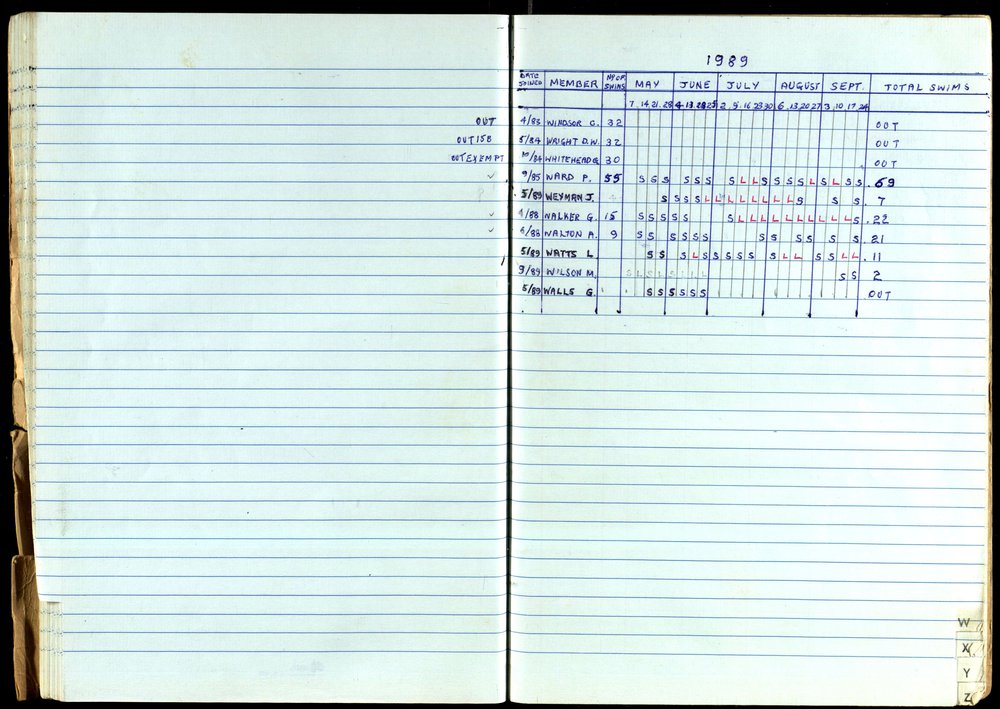 1989
DATE JOINED MEMBER Nº OF SWIMS MAY JUNE JULY AUGUST SEPT. TOTAL SWIMS
7 14 21 28 4 13 25 2 9 16 23 30 6 13 20 27 3 10 17 24
OUT 4/83 WINDSOR C. 32 OUT
OUT 158 5/84 WRIGHT D.W. 32 OUT
OUT EXEMPT /84 WHITEHEAD G. 30 OUT
✓ 9/85 WARD P. 55 S S S S S S S L L S S S S L S L S S 69
5/89 WEYMAN J. S S S S L L L L L L L L S S S 7
✓ 1/88 WALKER G. 15 S S S S S S L L L L L L L L L L S 22
✓ 6/88 WALTON A. 9 S S S S S S S S S S S S 21
5/89 WATTS L. S S S L S S S S S S L L S S L L 11
9/89 WILSON M. S S 2
5/89 WALLS G. S S S S S S OUT
W
X
Y
Z